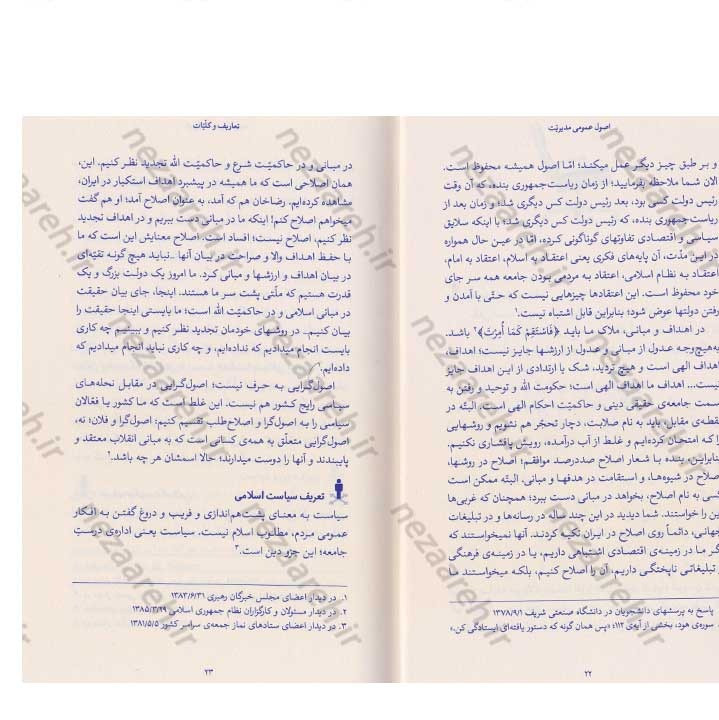 اصول عمومی مدیریّت
و بر طبق چیز دیگر عمل میکند؛ امّا اصول همیشه محفوظ است.
الان شما ملاحظه بفرمایید؛ از زمان ریاست‌جمهوری بنده، که آن وقت
رئیس دولت کسی بود، بعد رئیس دولت کس دیگری شد؛ و زمان بعد از
ریاست‌جمهوری بنده، که رئیس دولت کس دیگری شد؛ با اینکه سلایق
سیاسی و اقتصادی تفاوتهای گوناگونی کرده، امّا در عین حال همواره
در این مدّت، آن پایه‌های فکری یعنی اعتقاد به اسلام، اعتقاد به امام،
اعتقاد به نظام اسلامی، اعتقاد به مردمی بودن جامعه همه سر جای
خود محفوظ است. این اعتقادها چیزهایی نیست که حتّی با آمدن و
رفتن دولتها عوض شود؛ بنابراین قابل اشتباه نیست.۱
در اهداف و مبانی، ملاک ما باید ﴿فَاستَقِم کَما أُمِرتَ﴾۲ باشد.
به‌هیچ‌وجه عدول از مبانی و عدول از ارزشها جایز نیست؛ اهداف،
اهداف الهی است و هیچ تردید، شک یا ارتدادی از این اهداف جایز
نیست... اهداف ما اهداف الهی است؛ حکومت الله و توحید و رفتن به
سمت جامعه‌ی حقیقی دینی و حاکمیّت احکام الهی است. البتّه در
نقطه‌ی مقابل، باید به نام صلابت، دچار تحجّر هم نشویم و روشهایی
را که امتحان کرده‌ایم و غلط از آب درآمده، رویش پافشاری نکنیم.
بنابراین، بنده با شعار اصلاح صددرصد موافقم؛ اصلاح در روشها،
اصلاح در شیوه‌ها، و استقامت در هدفها و مبانی. البتّه ممکن است
کسی به نام اصلاح، بخواهد در مبانی دست ببرد؛ همچنان که غربی‌ها
این را خواستند. شما دیدید در این چند ساله در رسانه‌ها و در تبلیغات
جهانی، دائماً روی اصلاح در ایران تکیه کردند. آنها نمیخواستند که
اگر ما در زمینه‌ی اقتصادی اشتباهی داریم، یا در زمینه‌ی فرهنگی
تبلیغاتی ناپختگی داریم، آن را اصلاح کنیم، بلکه میخواستند ما
پاسخ به پرسشهای دانشجویان در دانشگاه صنعتی شریف ۱۳۷۸/۹/۱
سوره‌ی هود، بخشی از آیه‌ی ۱۱۲؛ «پس همان گونه که دستور یافته‌ای ایستادگی کن.»
۲۲
تعاریف و کلّیّات
در مبانی و در حاکمیّت شرع و حاکمیّت الله تجدید نظر کنیم. این،
همان اصلاحی است که ما همیشه در پیشبرد اهداف استکبار در ایران،
مشاهده کرده‌ایم. رضاخان هم که آمد، به عنوان اصلاح آمد؛ او هم گفت
میخواهم اصلاح کنم! اینکه ما در مبانی دست ببریم و در اهداف تجدید
نظر کنیم، اصلاح نیست؛ افساد است. اصلاح معنایش این است که ما
با حفظ اهداف والا و صراحت در بیان آنها ..نباید هیچ گونه تقیّه‌ای
در بیان اهداف و ارزشها و مبانی کرد. ما امروز یک دولت بزرگ و یک
قدرت هستیم که ملّتی پشت سر ما هستند. اینجا، جای بیان حقیقت
در مبانی اسلامی و در حاکمیّت الله است؛ ما بایستی اینجا حقیقت را
بیان کنیم.. در روشهای خودمان تجدید نظر کنیم و ببینیم چه کاری
بایست انجام میدادیم که نداده‌ایم، و چه کاری نباید انجام میدادیم که
داده‌ایم.۱
اصول‌گرایی به حرف نیست؛ اصول‌گرایی در مقابل نحله‌های
سیاسی رایج کشور هم نیست. این غلط است که ما کشور یا فعّالان
سیاسی را به اصول‌گرا و اصلاح‌طلب تقسیم کنیم: اصول‌گرا و فلان؛ نه،
اصول‌گرایی متعلّق به همه‌ی کسانی است که به مبانی انقلاب معتقد و
پایبندند و آنها را دوست میدارند؛ حالا اسمشان هر چه باشد.۲
تعریف سیاست اسلامی
سیاست به معنای پشت‌هم‌اندازی و فریب و دروغ گفتن به افکار
عمومی مردم، مطلوب اسلام نیست. سیاست یعنی اداره‌ی درستِ
جامعه؛ این جزو دین است.۳
۱. در دیدار اعضای مجلس خبرگان رهبری ۱۳۸۳/۶/۳۱
۲. در دیدار مسئولان و کارگزاران نظام جمهوری اسلامی ۱۳۸۵/۳/۲۹
۳. در دیدار اعضای ستادهای نماز جمعه‌ی سراسر کشور ۱۳۸۱/۵/۵
۲۳
nezaareh.ir